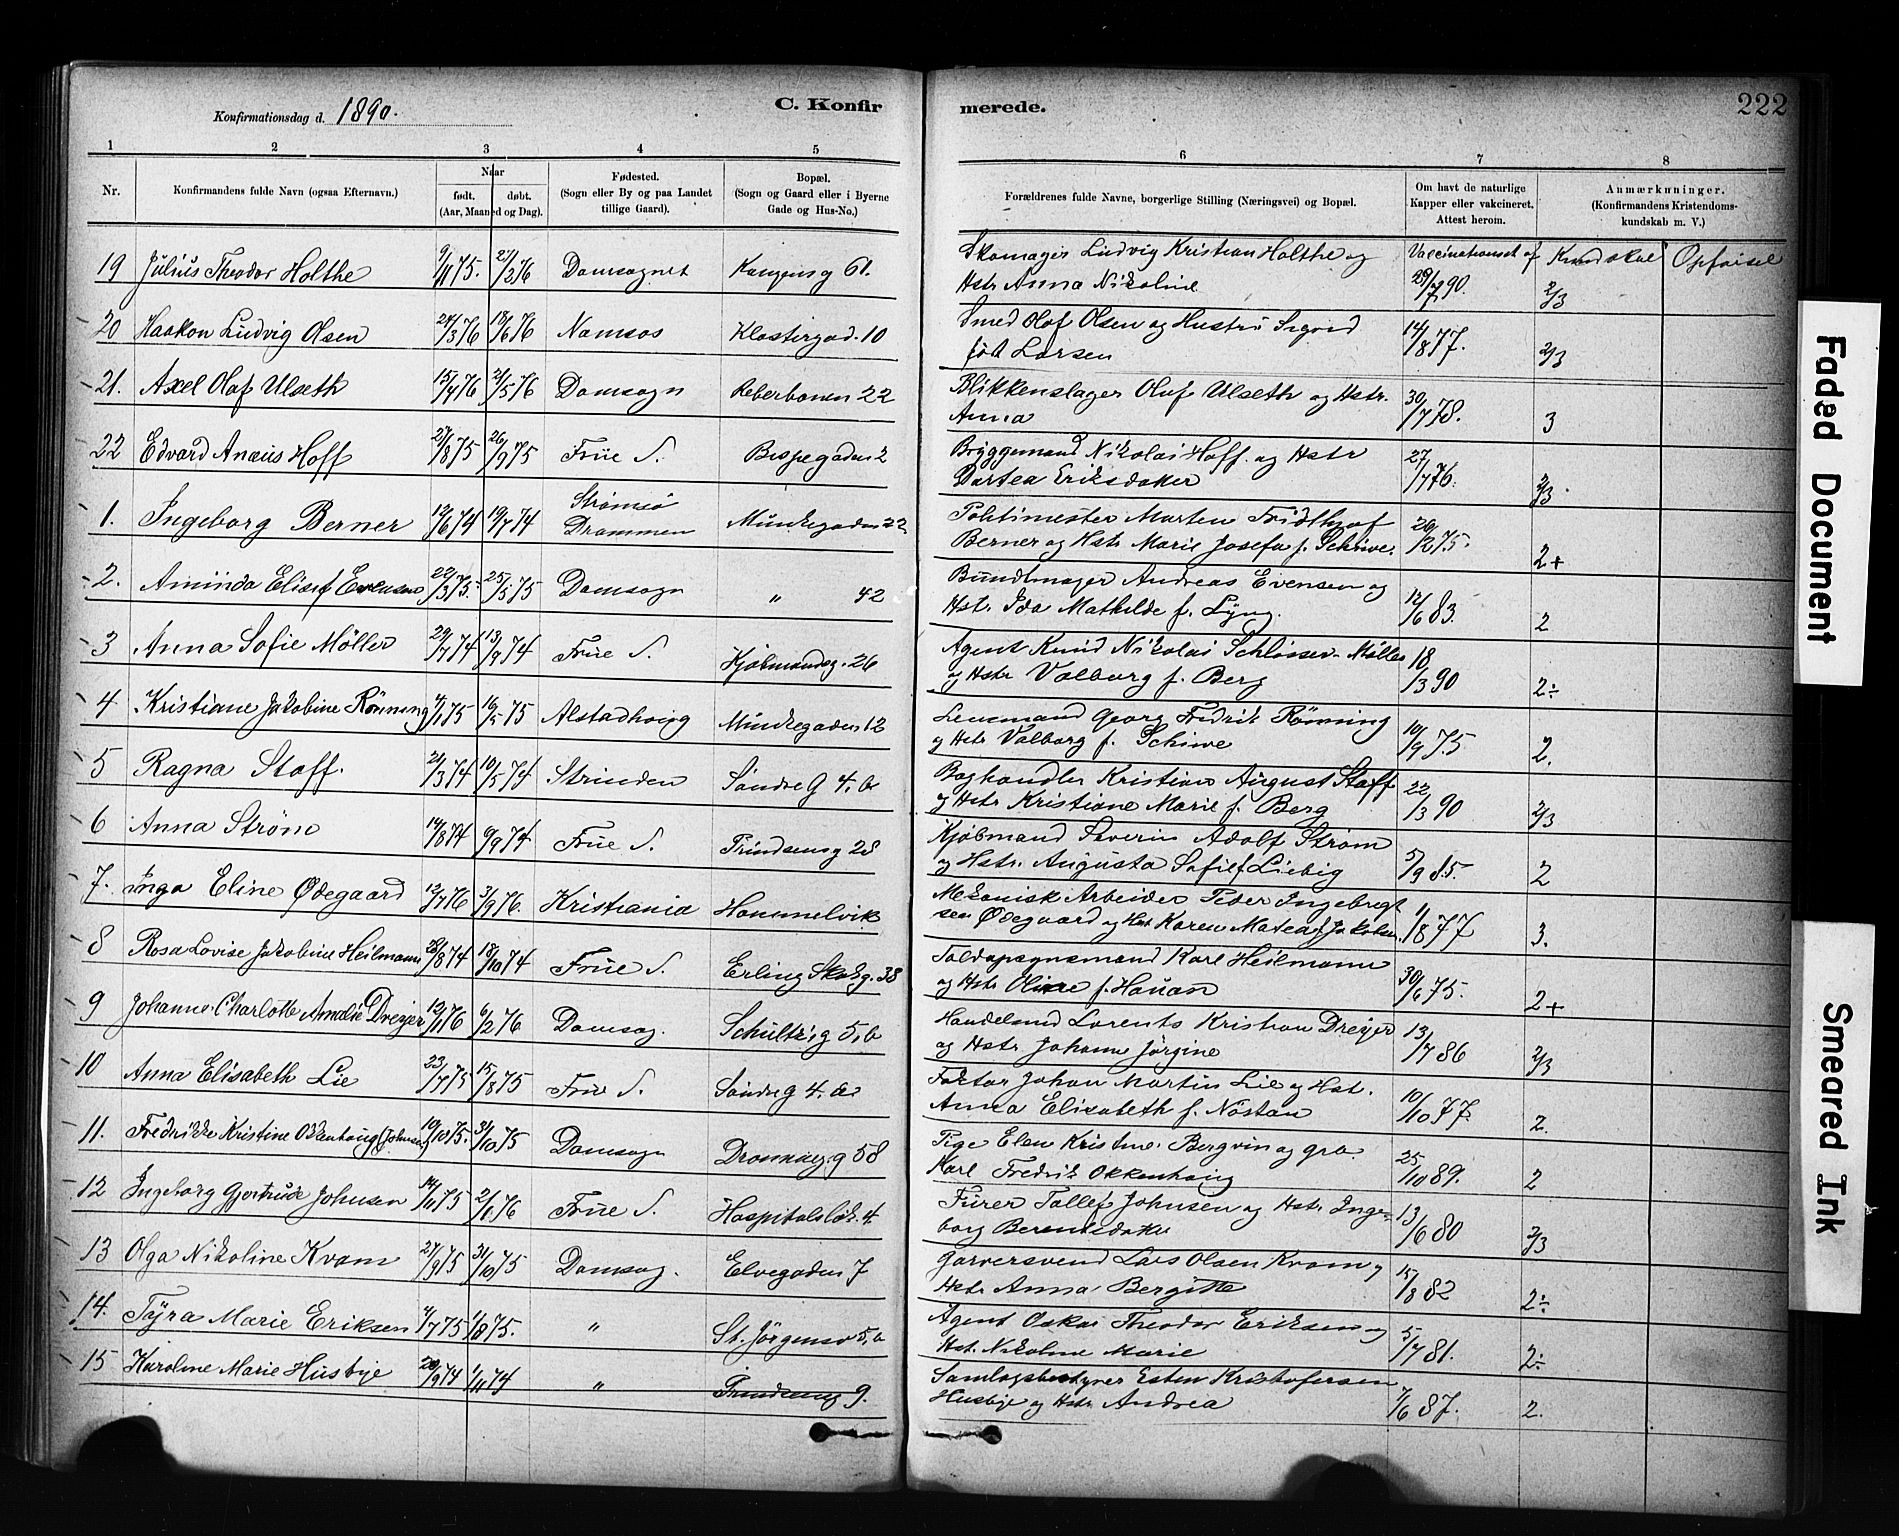 Konfirmationsdag d. 1890.
C. Konfir
merede.
222
1 2 3 4 5 6 7 8
Nr.
Konfirmandens fulde Navn (ogsaa Efternavn.)
Naar
født. døbt.
(Aar, Maaned og Dag).
Fødested.
(Sogn eller By og paa Landet
tillige Gaard).
Bopæl.
(Sogn og Gaard eller i Byerne
Gade og Hus-No.)
Forældrenes fulde Navne, borgerlige Stilling (Næringsvei) og Bopæl.
Om havt de naturlige
Kapper eller vakcineret.
Attest herom.
Anmærkninger.
(Konfirmandens Kristendoms-
kundskab m. V.)
19 Julius Theodor Holthe 9/11 75. 27/2 76 Domsognet Kongensg 61. Skomager Ludvig Kristian Holthe og Vaccinationsat af Kundskab Opførsel
Hstr Anna Nikoline 29/7 90. 2/3
20 Haakon Ludvig Olsen 24/3 76 18/6 76 Namsos Klostergad. 10 Smed Olof Olsen og Hustru Sigrid 14/8 77. 2/3
fød Larsen
21. Axel Olaf Ulseth 15/4 76 21/5 76 Domsogn Reberbanen 22 Blikkenslager Oluf Ulseth og Hstr. 30/7 78. 3
Anna
22 Edvard Anæus Hoff 27/8 75 26/9 75 Frue S. Bispegaden 2 Bryggemand Nikolai Hoff og Hstr 27/7 76. 2/3.
Dortea Eriksdatter
1. Ingeborg Berner 12/6 74 19/7 74 Strømsø
Drammen Munkegaden 22 Politimester Morten Fridthjof 20/12 75. 2+
Berner og Hstr Marie Josefa f. Schiwe.
2. Aminda Elisef Evensen 22/3 75. 25/5 75 Domsogn " 42 Bundtmager Andreas Evensen og 12/6 83. 2
Hstr. Ida Mathilde f. Lyng.
3 Anna Sofie Möller 29/7 74 13/9 74 Frue S. Kjøbmandsg. 26 Agent Knud Nikolai Schlösser-Möller 18/3 90 2÷
og Hstr Valborg f. Berg
4 Kristiane Jakobine Rønning 4/1 75 16/5 75 Alstadhoug Munkegaden 12 Lensmand Georg Fredrik Rønning 10/9 75 2.
og Hstr Valborg f. Schiwe
5 Ragna Staff. 21/3 74 10/5 74 Strinden Søndre G 4. b Boghandler Kristian August Staff 22/3 90 2/3
og Hstr Kristiane Marie f. Berg
6 Anna Strøm 14/8 74 6/9 74. Frue S. Prindsensg 28 Kjøbmand Severin Adolf Strøm 5/9 85. 2
og Hstr. Augusta Sofie f Liebig
7. Inga Eline Ødegaard 12/7 76 3/9 76. Kristiania Hommelvik Mekanisk Arbeider Peder Ingebrigt 1/8 77 3.
sen Ødegaard og Hst Karen Matea f. Jakobsen.
8 Rosa Lovise Jakobine Heilmann 23/8 74 18/10 74 Frue S. Erling Skakg. 38 Toldopsynsmand Karl Heilmann 30/6 75. 2+
og Hstr Oline f. Hauan
9 Johanne Charlotte Amalie Dreyer 12/1 76 6/2 76 Domsog. Schultzg 5. b Handelsmd Lorents Kristian Dreyer 13/7 86 2/3
og Hstr Johanne Jørgine
10 Anna Elisabeth Lie 23/7 75 15/8 75 Frue S. Søndre G 4. a. Faktor Johan Martin Lie og Hst. 10/10 77. 2.
Anna Elisabeth f. Nöstan
11. Fredrikke Kristine Okkenhaug (Johnsen) 10/10 75. 31/10 75 Domsogn Dronning. g 58 Pige Elen Kristine Bergvin og grb. 25/10 89. 2
Karl Fredrik Okkenhaug
12 Ingeborg Gjertrude Johnsen 14/11 75 2/1 76 Frue S. Hospitalsløk. 4. Furer Tollef Johnsen og Hstr Inge- 13/6 80 2/3
borg Berentsdatter
13 Olga Nikoline Kvam 27/9 75 31/10 75 Domsog. Elvegaden 7 Garversvend Lars Olsen Kvam og 15/8 82 2÷
Hstr Anna Bergitte
14. Tyra Marie Eriksen 4/7 75 1/8 75. " St. Jørgensv 5. b Agent Oskar Theodor Eriksen og 5/7 81. 2÷
Hst. Nikoline Marie
15 Karoline Marie Husbye 20/9 74 1/11 74 " Prindseng 9. Samlagsbestyrer Esten Kristofersen 7/6 87. 2.
Husbye og Hstr Andrea
Faded Document
Smeared Ink